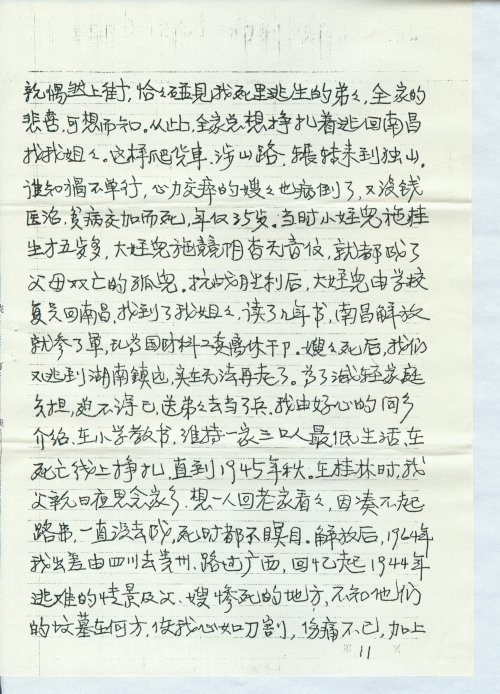 亲偶然上街，恰々碰见我死里逃生的弟々，全家的
悲喜，可想而知。从此，全家总想挣扎着逃回南昌
找我姐々。这样爬货车，涉山路，辗转来到独山。
谁知祸不单行，心力交瘁的嫂々也病倒了，又没钱
医治，贫病交加而死，年仅35岁。当时小侄儿施桂
生才五岁多，大侄儿施竞阴杳无音信，就都成了
父母双亡的孤儿。抗战胜利后，大侄儿由学校
复员回南昌，找到了我姐々，读了几年书，南昌解放
就参了军，现为国防科工委离休干卩。嫂々死后，我们
又逃到湖南镇远，实在无法再走了。为了减轻家庭
负担，迫不得已，送弟々去当了兵，我由好心的同乡
介绍，在小学教书，维持一家三口人最低生活，在
死亡线上挣扎，直到1945年秋。在桂林时，我
父亲日夜思念家乡，想一人回老家看々，因凑不起
路费，一直没去成，死时都不瞑目。解放后，1964年
我出差由四川去贵州，路过广西，回忆起1944年
逃难的情景及父、嫂惨死的地方，不知他们
的坟墓在何方，使我心如刀割，伤痛不已，加上
11